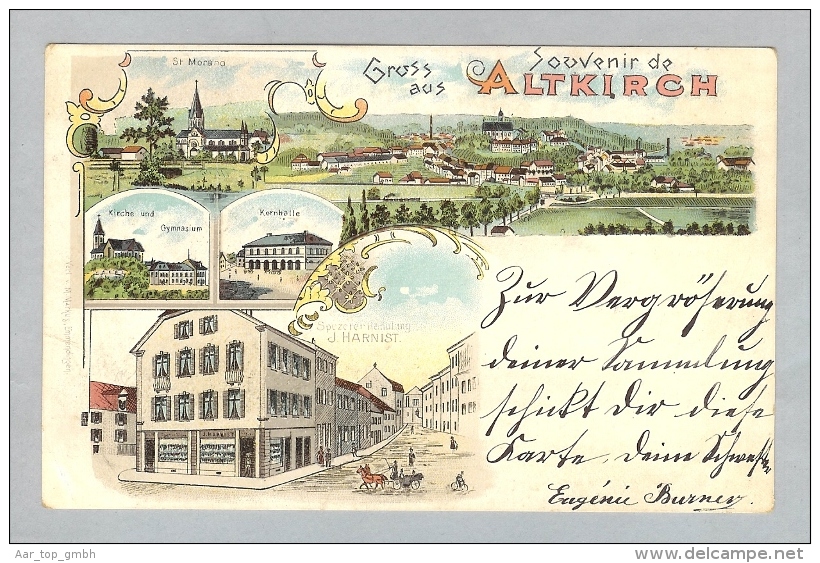 St Morand
Gruss aus
Souvenir de
ALTKIRCH
Kirche und
Gymnasium
Kornhalle
Spezereihandlung
J. HARNIST.
Zur Vergröserung
deiner Sammlung
schickt Dir diese
Karte, deine Schwester
Eugénie Burner.
Aar_top_gmbh
www.delcampe.net